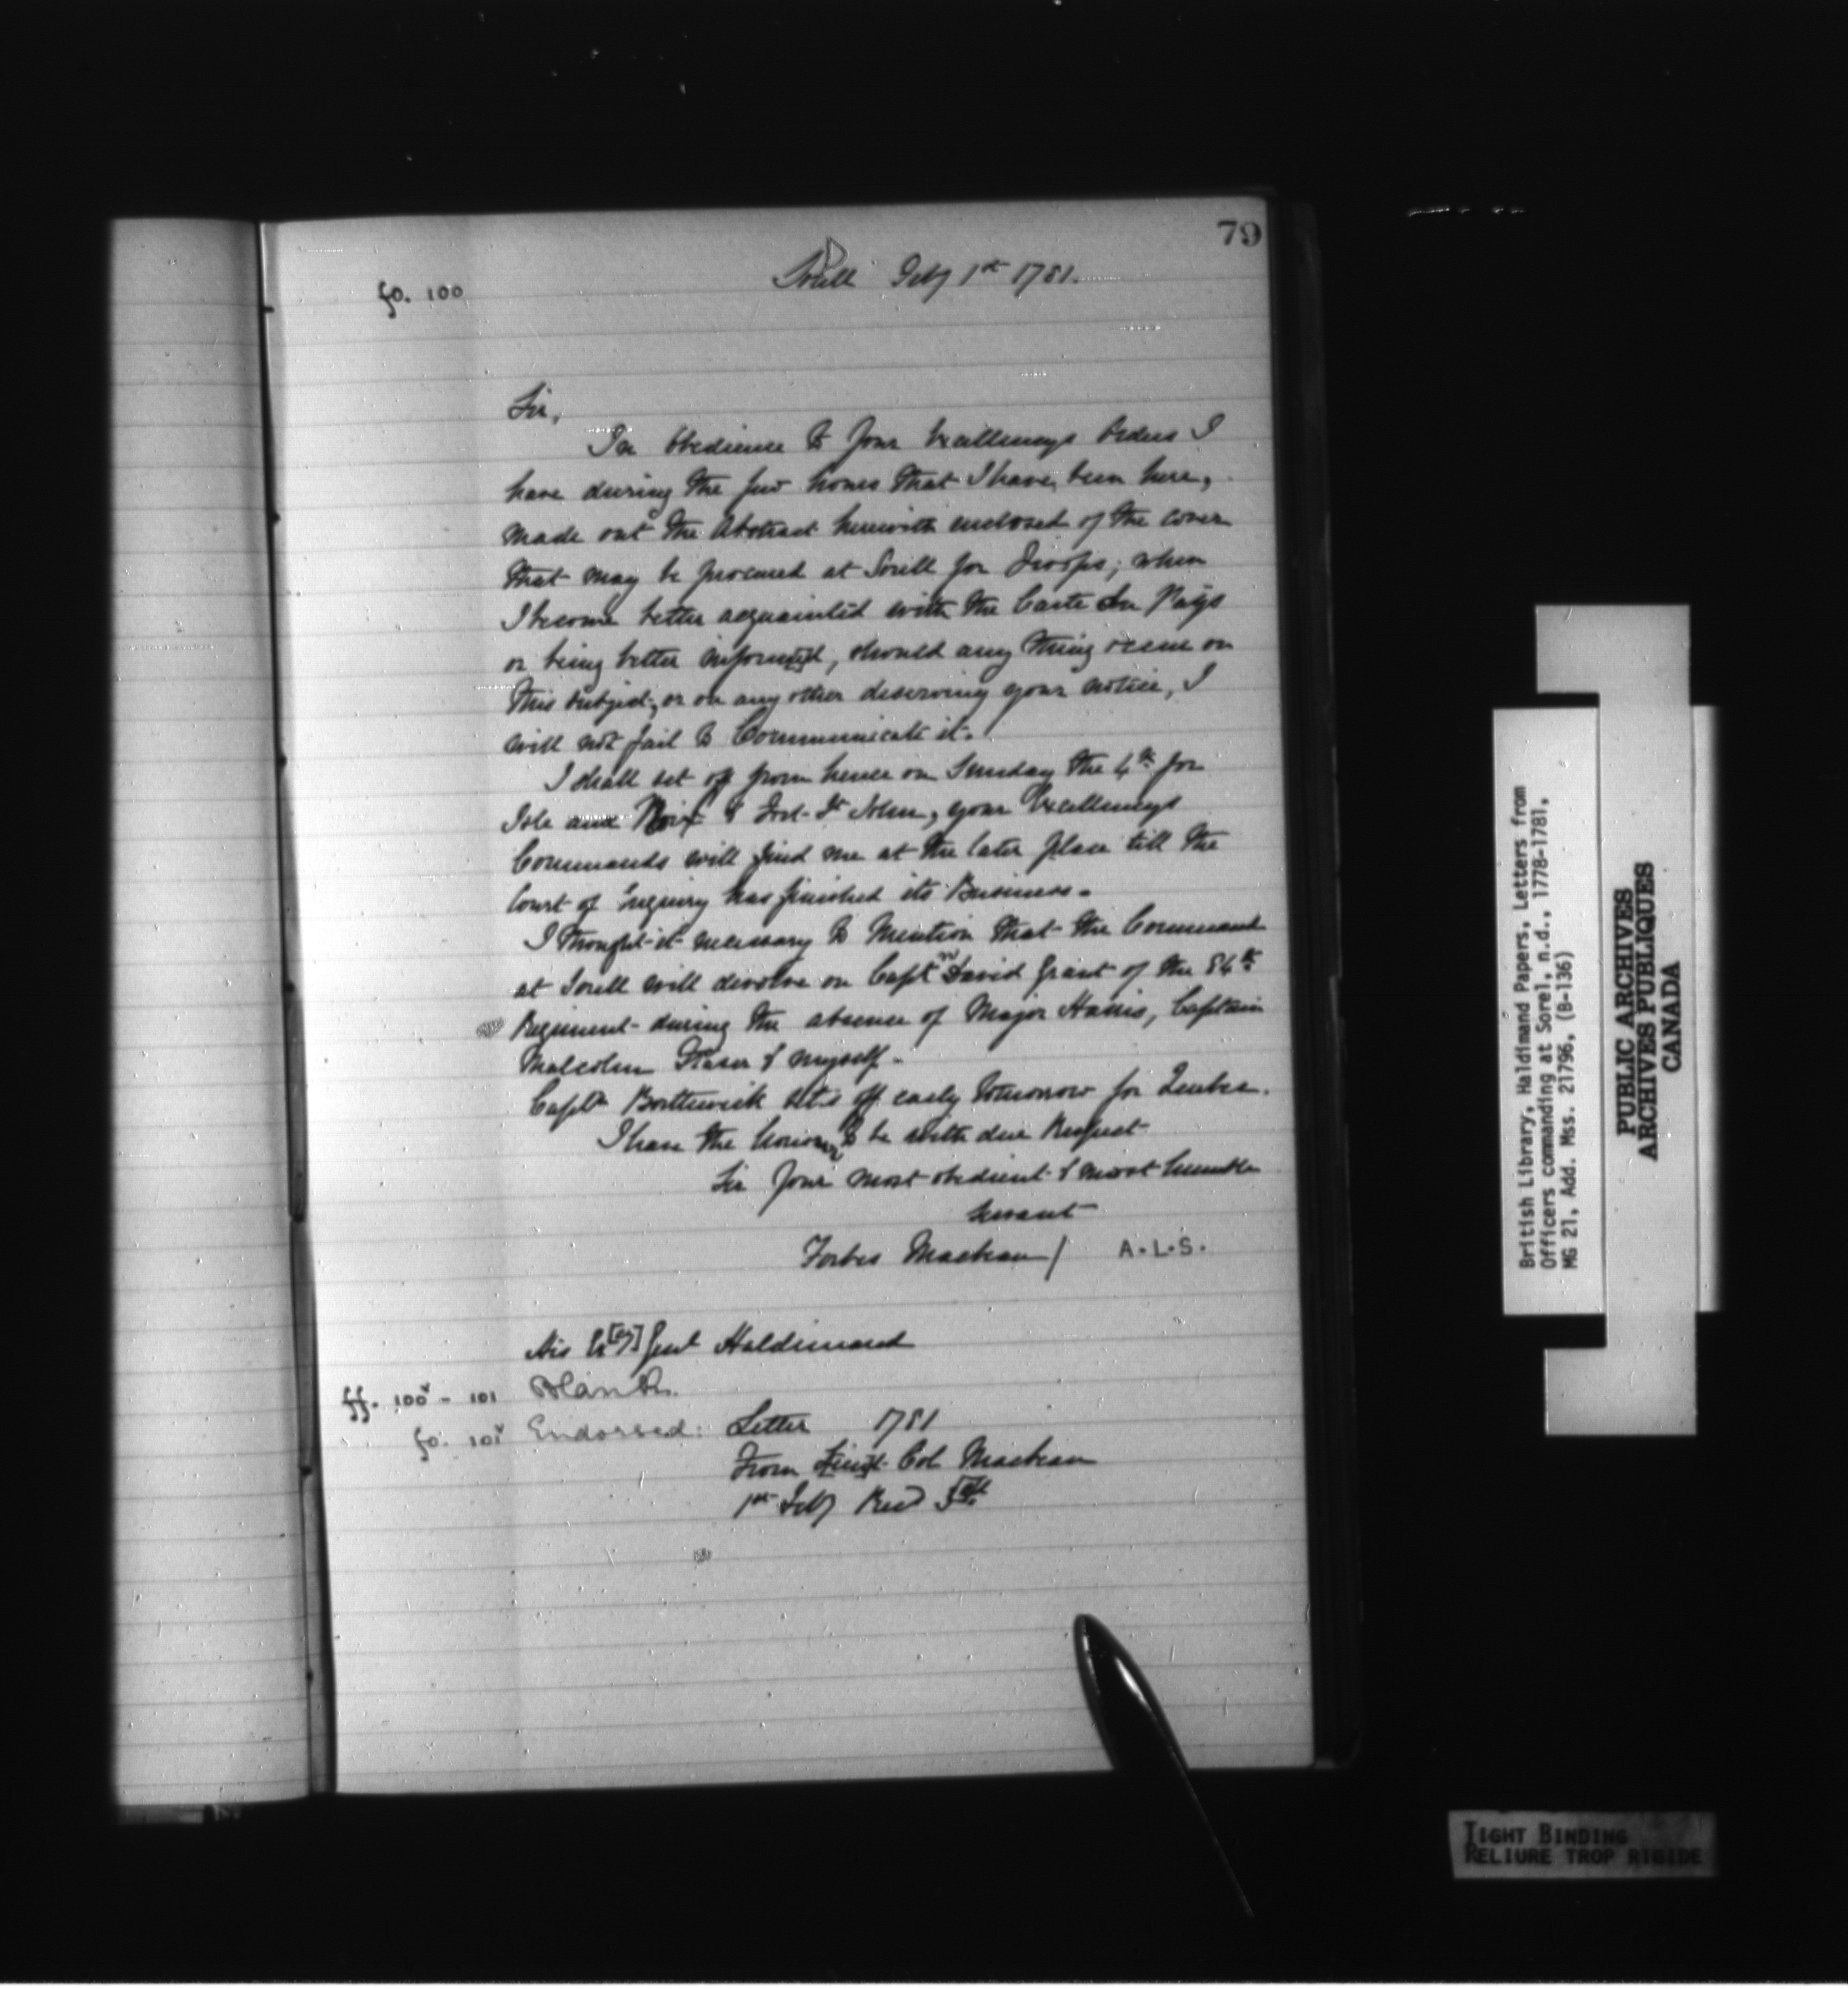 79
fo. 100
Sorell Feby 1st 1781.
Sir,
In obedience to Your Excellencys Orders I
have during the few hours that I have been here,
made out the Abstract herewith enclosed of the cover
that may be procured at Sorell for Troops; when
I become better acquainted with the Carte du Pays
or being better informed, should any thing occur on
this subject, or on any other deserving your notice, I
will not fail to Communicate it.
I shall set off from hence on Sunday the 4th for
Isle aux Noix & Fort St John, your Excellencys
Commands will find me at the later place till the
Court of Enquiry has finished its Business.
I thought it necessary to Mention that the Command
at Sorell will devolve on Captn David Grant of the 84th
Regiment during the absence of Major Harris, Captain
Malcolm Fraser & myself.
Captn Borthwick sets off early tomorrow for Quebec.
I have the honour to be with due Respect
Sir Your most obedient & most humble
Servant
Forbes Macbean / A.L.S.
His Ex[cy] Genl Haldimand
ff. 100v - 101 Blank.
fo. 101v Endorsed: Letter 1781
From Lieut Col Macbean
1st Feby Recd
British Library, Haldimand Papers, Letters from
Officers commanding at Sorel, n.d., 1778-1781,
MG 21, Add. Mss. 21796, (B-136)
PUBLIC ARCHIVES
ARCHIVES PUBLIQUES
CANADA
TIGHT BINDING
RELIURE TROP RIGIDE